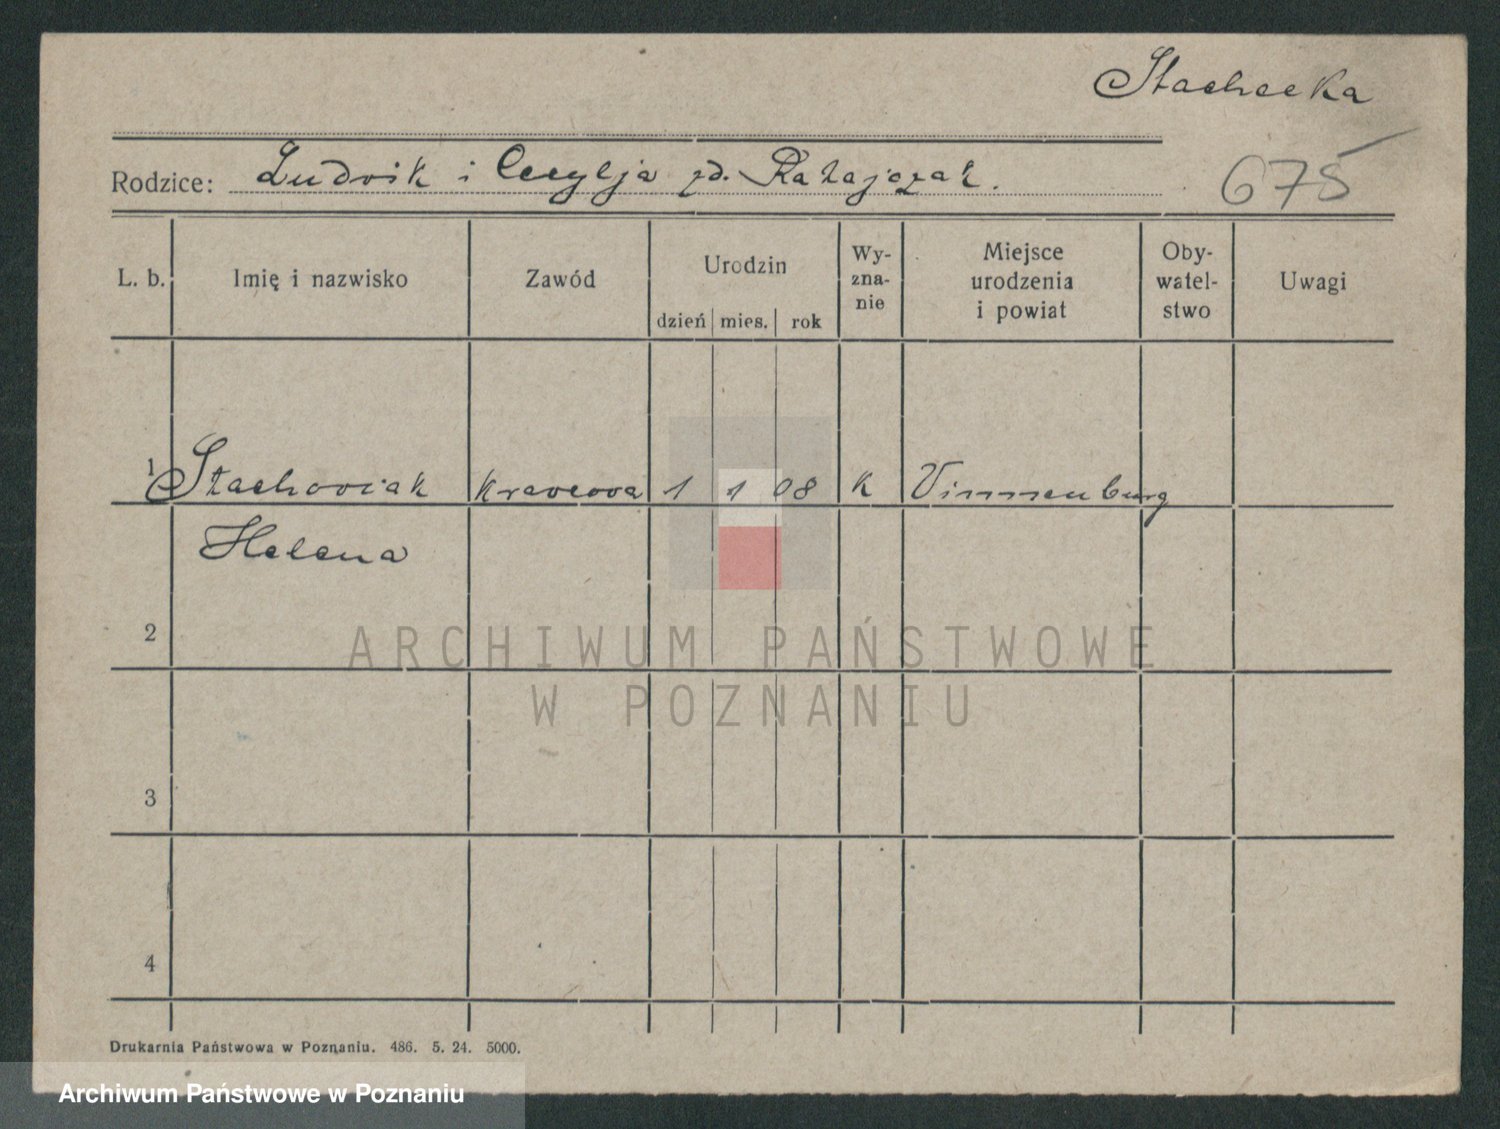 Stachecka
Rodzice: Ludvik i Cecylja zd. Ratajczak.
675
L. b. Imię i nazwisko Zawód Urodzin dzień mies. rok Wyznanie Miejsce urodzenia i powiat Obywatelstwo Uwagi
1 Stachoviak kravcova 1 1 08 K Vinnenburg
Helena
2
3
4
ARCHIWUM PAŃSTWOWE
W POZNANIU
Drukarnia Państwowa w Poznaniu. 486. 5. 24. 5000.
Archiwum Państwowe w Poznaniu